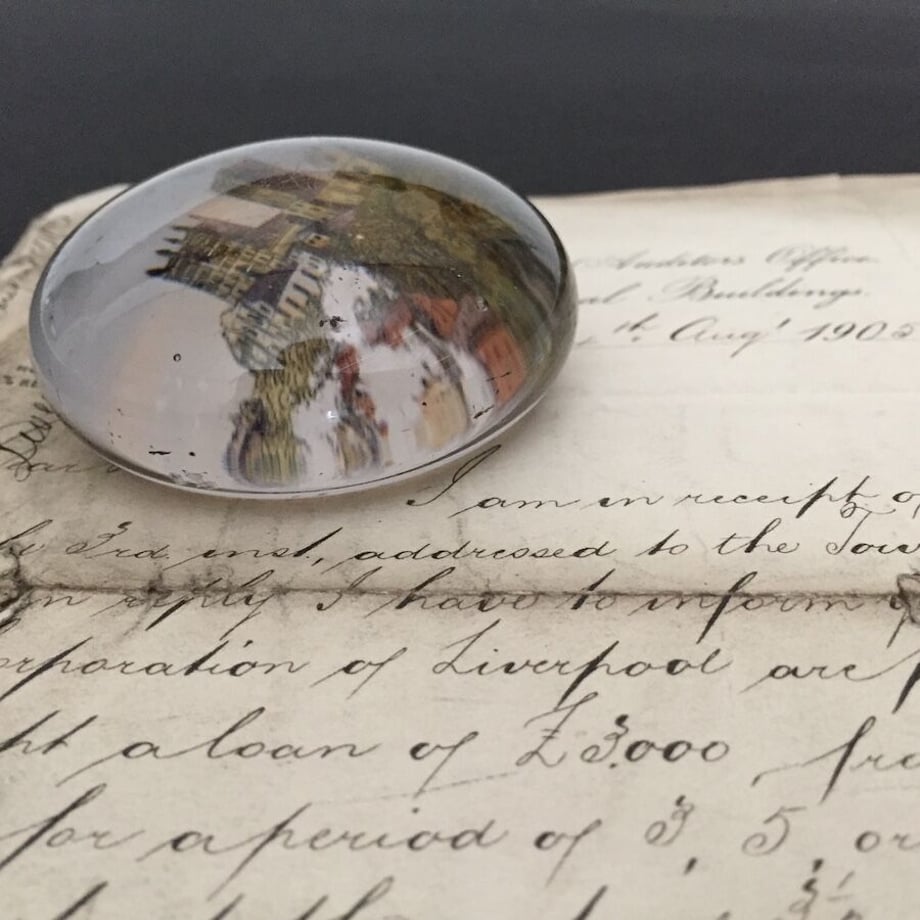 Auditors Office
Buildings.
th. Augt 190
I am in receipt o
3rd. inst, addressed to the Tow
n reply I have to inform
orporation of Liverpool are
ht a loan of £3,000, fr
for a period of 3, 5, or